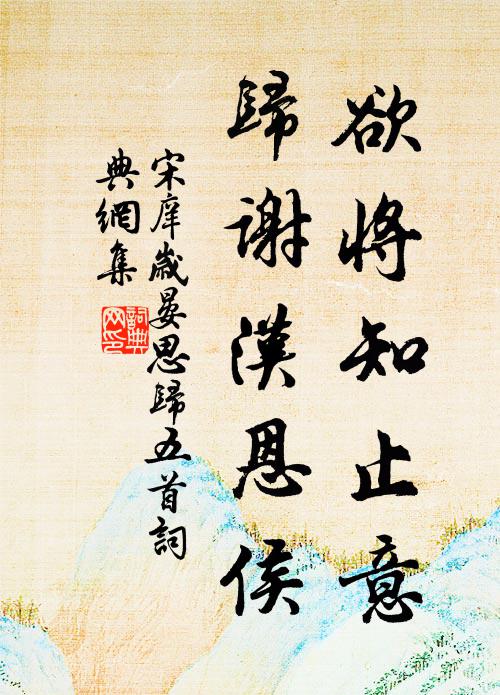 欲將知止意
歸謝漢恩侯
宋庠歲晏思歸五首詞
典網集
詞典
网印